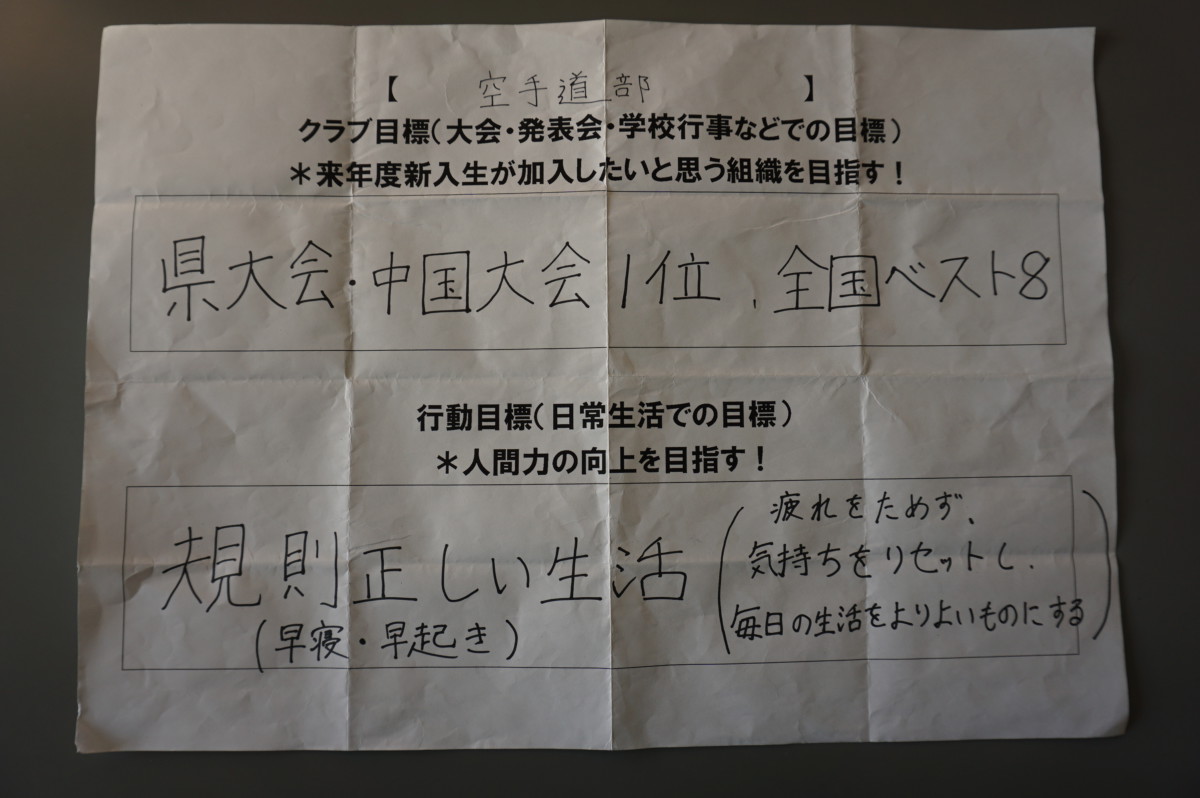 【 空手道部 】
クラブ目標(大会・発表会・学校行事などでの目標)
＊来年度新入生が加入したいと思う組織を目指す！
県大会・中国大会1位、全国ベスト8
行動目標(日常生活での目標)
＊人間力の向上を目指す！
規則正しい生活
(早寝・早起き)
(疲れをためず、
気持ちをリセットし、
毎日の生活をよりよいものにする)